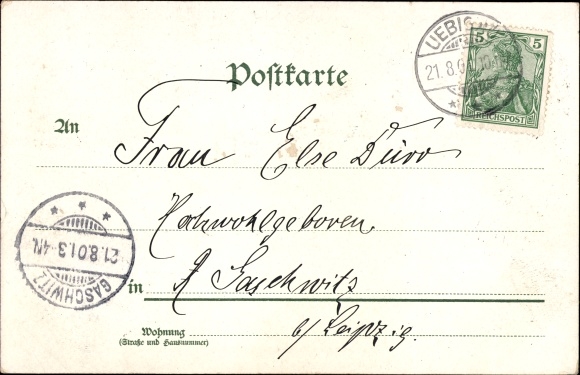 Postkarte
UEBIG
21.8.0
5 5
REICHSPOST
An Frau Else Dürr
Hochwohlgeboren.
in Gaschwitz
b/ Leipzig.
Wohnung
(Straße und Hausnummer)
21.8.01.3-4N.
GASCHWITZ